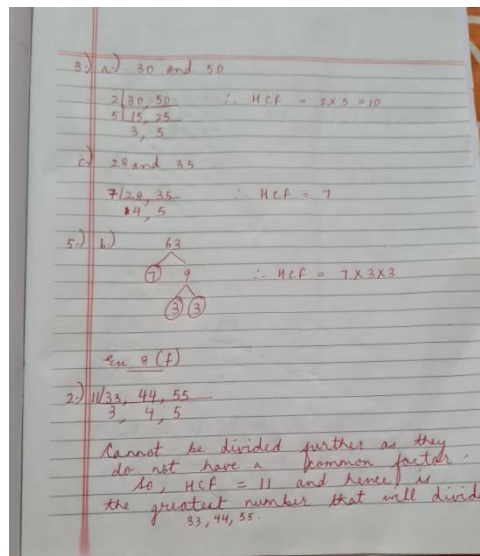 3.) a.) 30 and 50
2|30, 50 ∴ HCF = 2 x 5 = 10
5|15, 25
3, 5
c) 28 and 35
7|28, 35 ∴ HCF = 7
4, 5
5.) b.) 63
7 9 ∴ HCF = 7 x 3 x 3
3 3
ex 8 (f)
2.) 11|33, 44, 55
3, 4, 5
Cannot be divided further as they
do not have a common factor.
So, HCF = 11 and hence is
the greatest number that will divide
33, 44, 55.